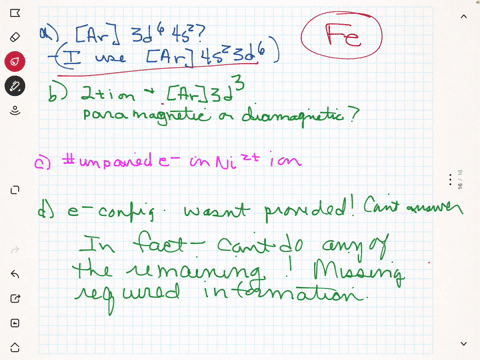 a) [Ar] 3d⁶ 4s²?
Fe
-(I use [Ar] 4s² 3d⁶)
b) 2+ion → [Ar] 3d³
paramagnetic or diamagnetic?
c) #unpaired e- in Ni²⁺ ion
d) e-config. wasnt provided! Cant answer
In fact - cant do any of
the remaining! Missing
required information.